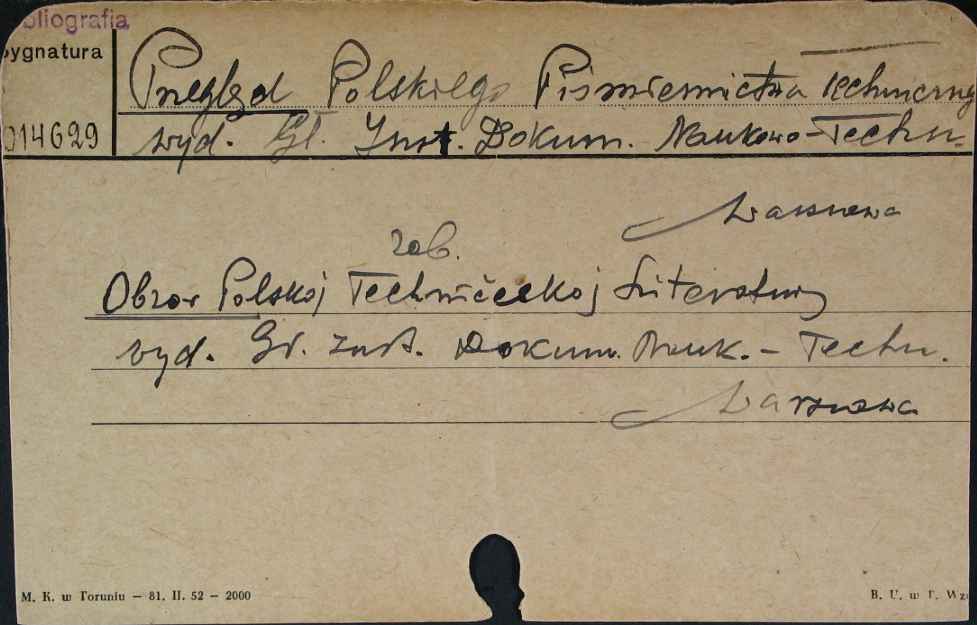 bliografia
ygnatura
Przegląd Polskiego Piśmiennictwa Techniczneg
014629
wyd. Gł. Inst. Dokum. Naukowo-Techn.
Warszawa
zob.
Obzor Polskoj Techničeskoj Literatury
wyd. Gł. Inst. Dokum. Nauk.- Techn.
Warszawa
M. K. w Toruniu – 81. II. 52 – 2000
B. U. w T. Wz